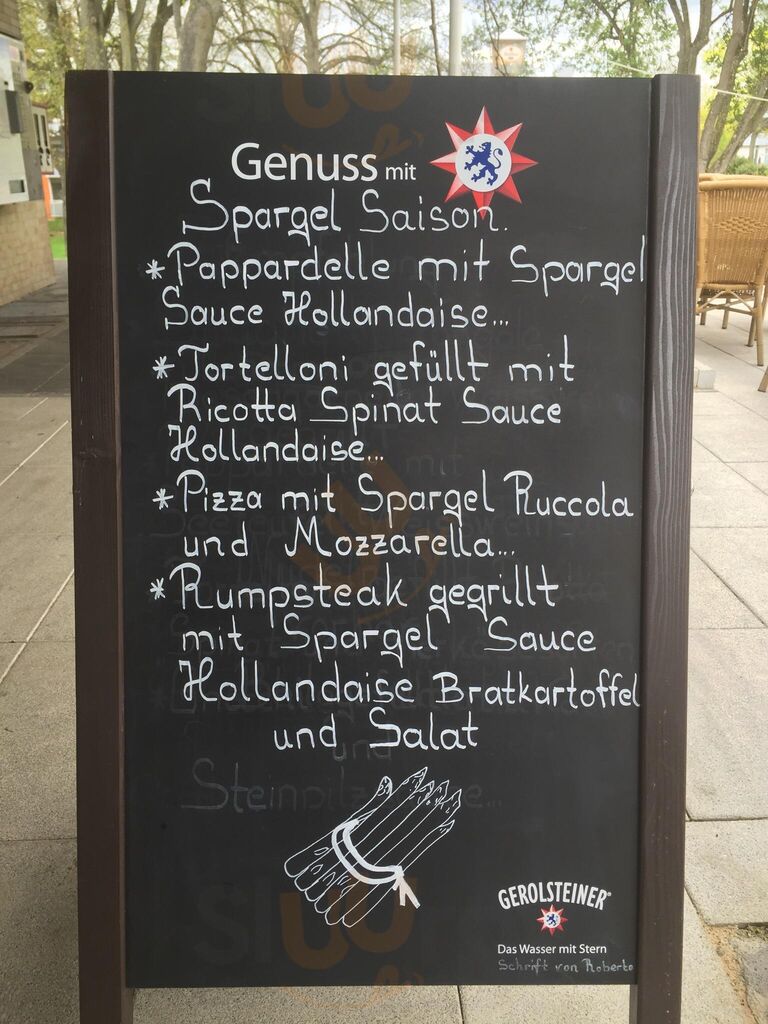 Genuss mit
Spargel Saison.
*Pappardelle mit Spargel
Sauce Hollandaise...
*Tortelloni gefüllt mit
Ricotta Spinat Sauce
Hollandaise...
*Pizza mit Spargel Ruccola
und Mozzarella...
*Rumpsteak gegrillt
mit Spargel Sauce
Hollandaise Bratkartoffel
und Salat
GEROLSTEINER®
Das Wasser mit Stern
Schrift von Roberto